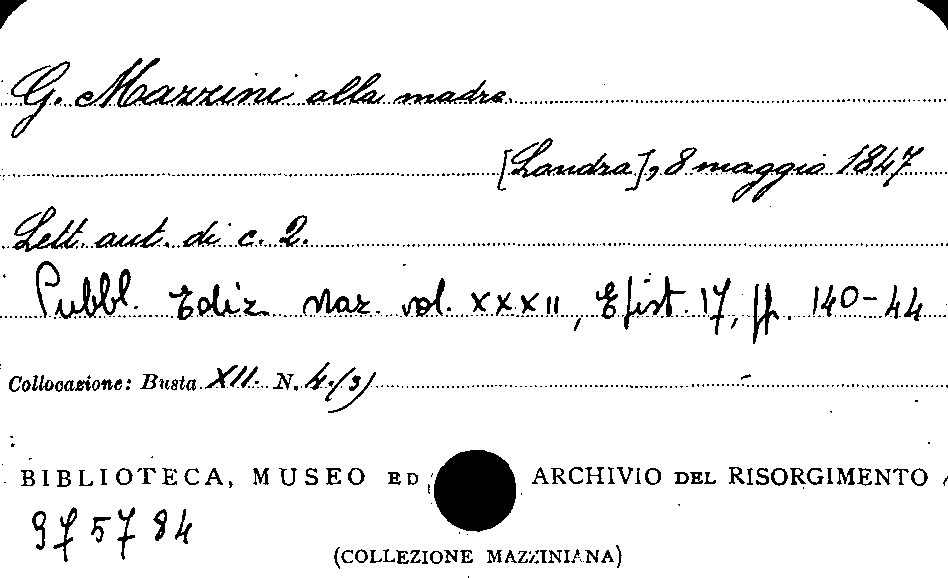 G. Mazzini alla madre.
[Londra], 8 maggio 1847
Lett. aut. di c. 2.
Pubbl. Ediz. Naz. vol. XXXII, Epist. 17, pp. 140-44
Collocazione: Busta XII. N. 4.(3)
BIBLIOTECA, MUSEO ED ARCHIVIO DEL RISORGIMENTO
975784
(COLLEZIONE MAZZINIANA)